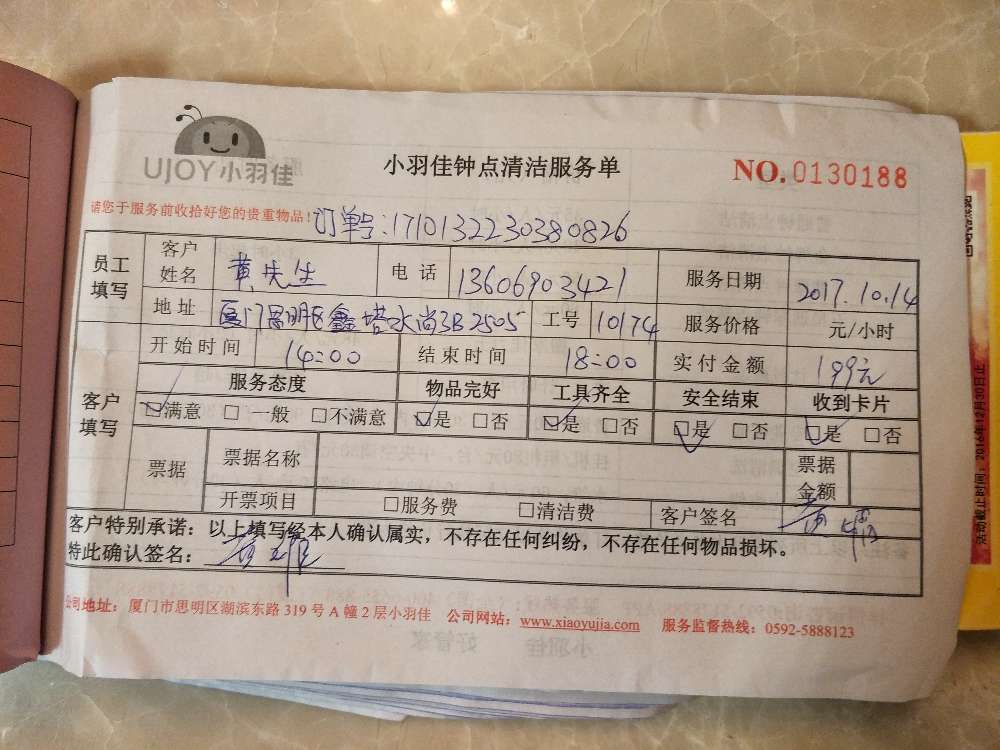 UJOY小羽佳
小羽佳钟点清洁服务单
NO.0130188
请您于服务前收拾好您的贵重物品!
订单号:171013223038082​6
员工填写 客户姓名 黄先生 电话 13606903421 服务日期 2017.10.14
地址 厦门思明区鑫塔水尚3B2505 工号 10174 服务价格 元/小时
开始时间 14:00 结束时间 18:00 实付金额 199元
客户填写 服务态度 物品完好 工具齐全 安全结束 收到卡片
☑满意 □一般 □不满意 ☑是 □否 ☑是 □否 ☑是 □否 ☑是 □否
票据 票据名称 票据金额
开票项目 □服务费 □清洁费 客户签名 黄
客户特别承诺:以上填写经本人确认属实,不存在任何纠纷,不存在任何物品损坏。
特此确认签名: 黄
公司地址:厦门市思明区湖滨东路319号A幢2层小羽佳 公司网站:www.xiaoyujia.com 服务监督热线:0592-5888123
活动截止时间:2016年12月30日止